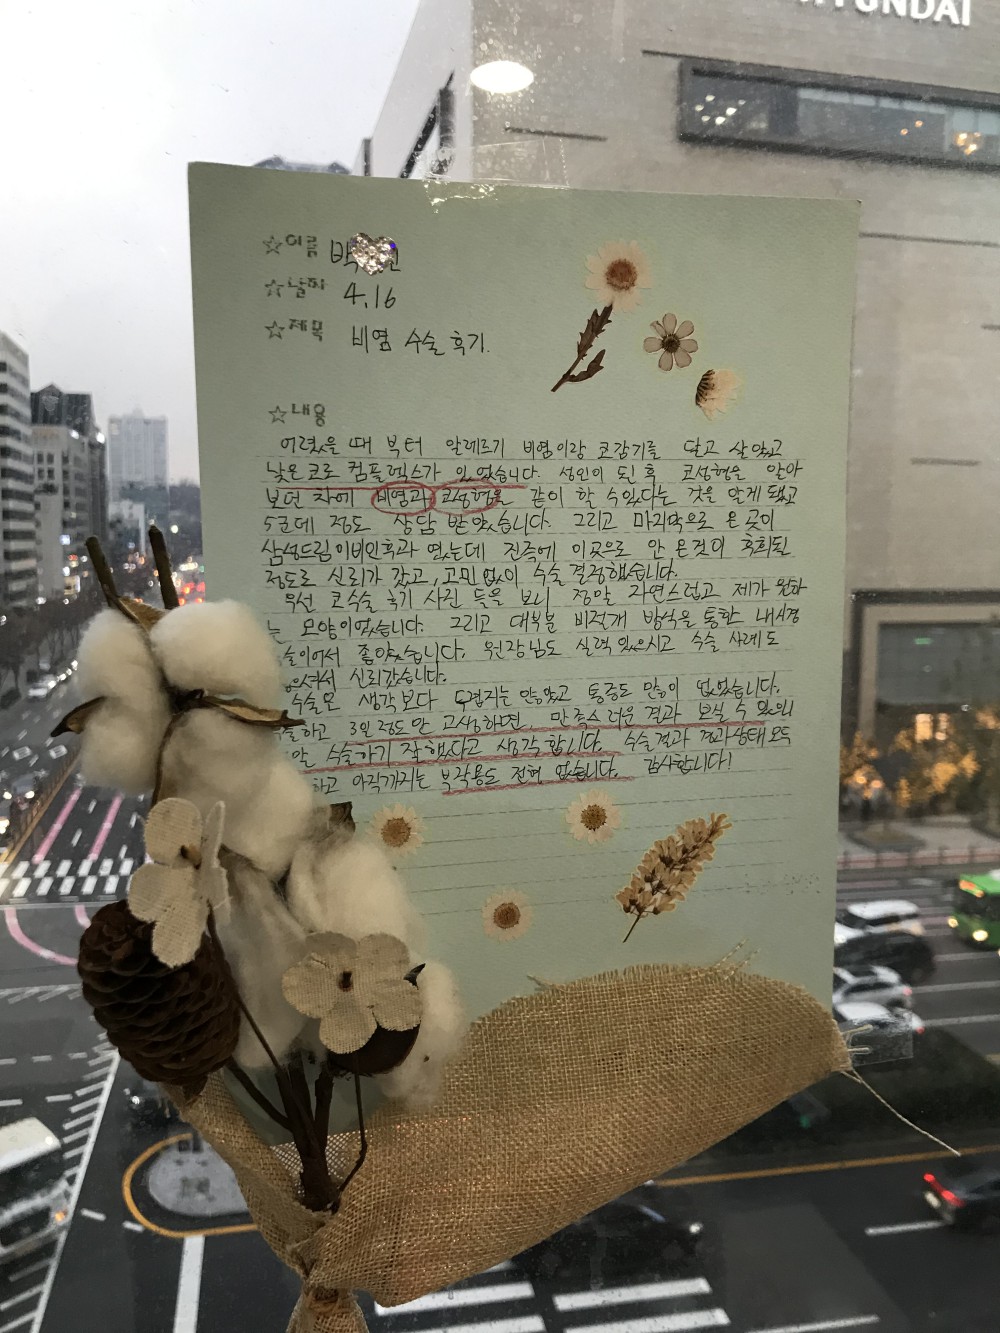 HYUNDAI
☆이름 박
☆날짜 4.16
☆제목 비염 수술 후기.
☆내용
어렸을 때 부터 알레르기 비염이랑 코감기를 달고 살았고
낮은 코로 컴플렉스가 있었습니다. 성인이 된 후 코성형을 알아
보던 차에 비염과 코성형을 같이 할 수 있다는 것을 알게 됐고
5군데 정도 상담 받았습니다. 그리고 마지막으로 온 곳이
삼성드림이비인후과 였는데 진즉에 이곳으로 안 온것이 후회된
정도로 신뢰가 갔고, 고민 없이 수술 결정했습니다.
우선 코수술 후기 사진 들을 보니 정말 자연스럽고 제가 원하
는 모양이었습니다. 그리고 대부분 비절개 방식을 통한 내시경
술이어서 좋았습니다. 원장님도 실력 있으시고 수술 사례도
으셔서 신뢰갔습니다.
수술도 생각보다 두렵지는 않았고 통증도 많이 없었습니다.
하고 3일 정도만 고생하면, 만족스러운 결과 보실 수 있으니
수술하기 잘했다고 생각합니다. 수술결과 경과상태 모두
하고 아직까지는 부작용도 전혀 없습니다. 감사합니다!